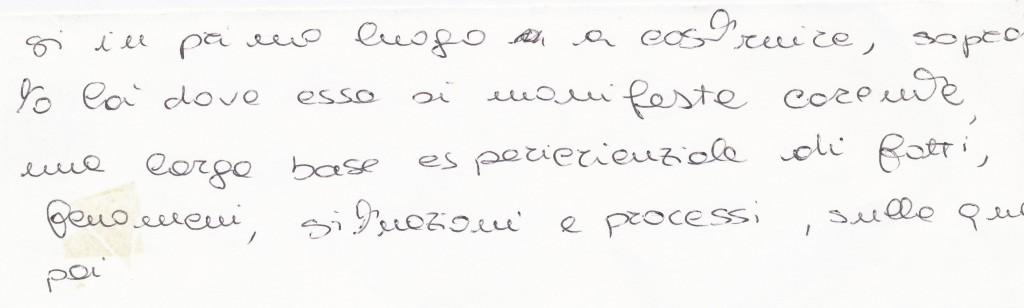 si in primo luogo a costruire, sopra
to lai dove essa si manifesta carente,
una larga base esperierienziale di fatti,
fenomeni, situazioni e processi, sulla qu
poi